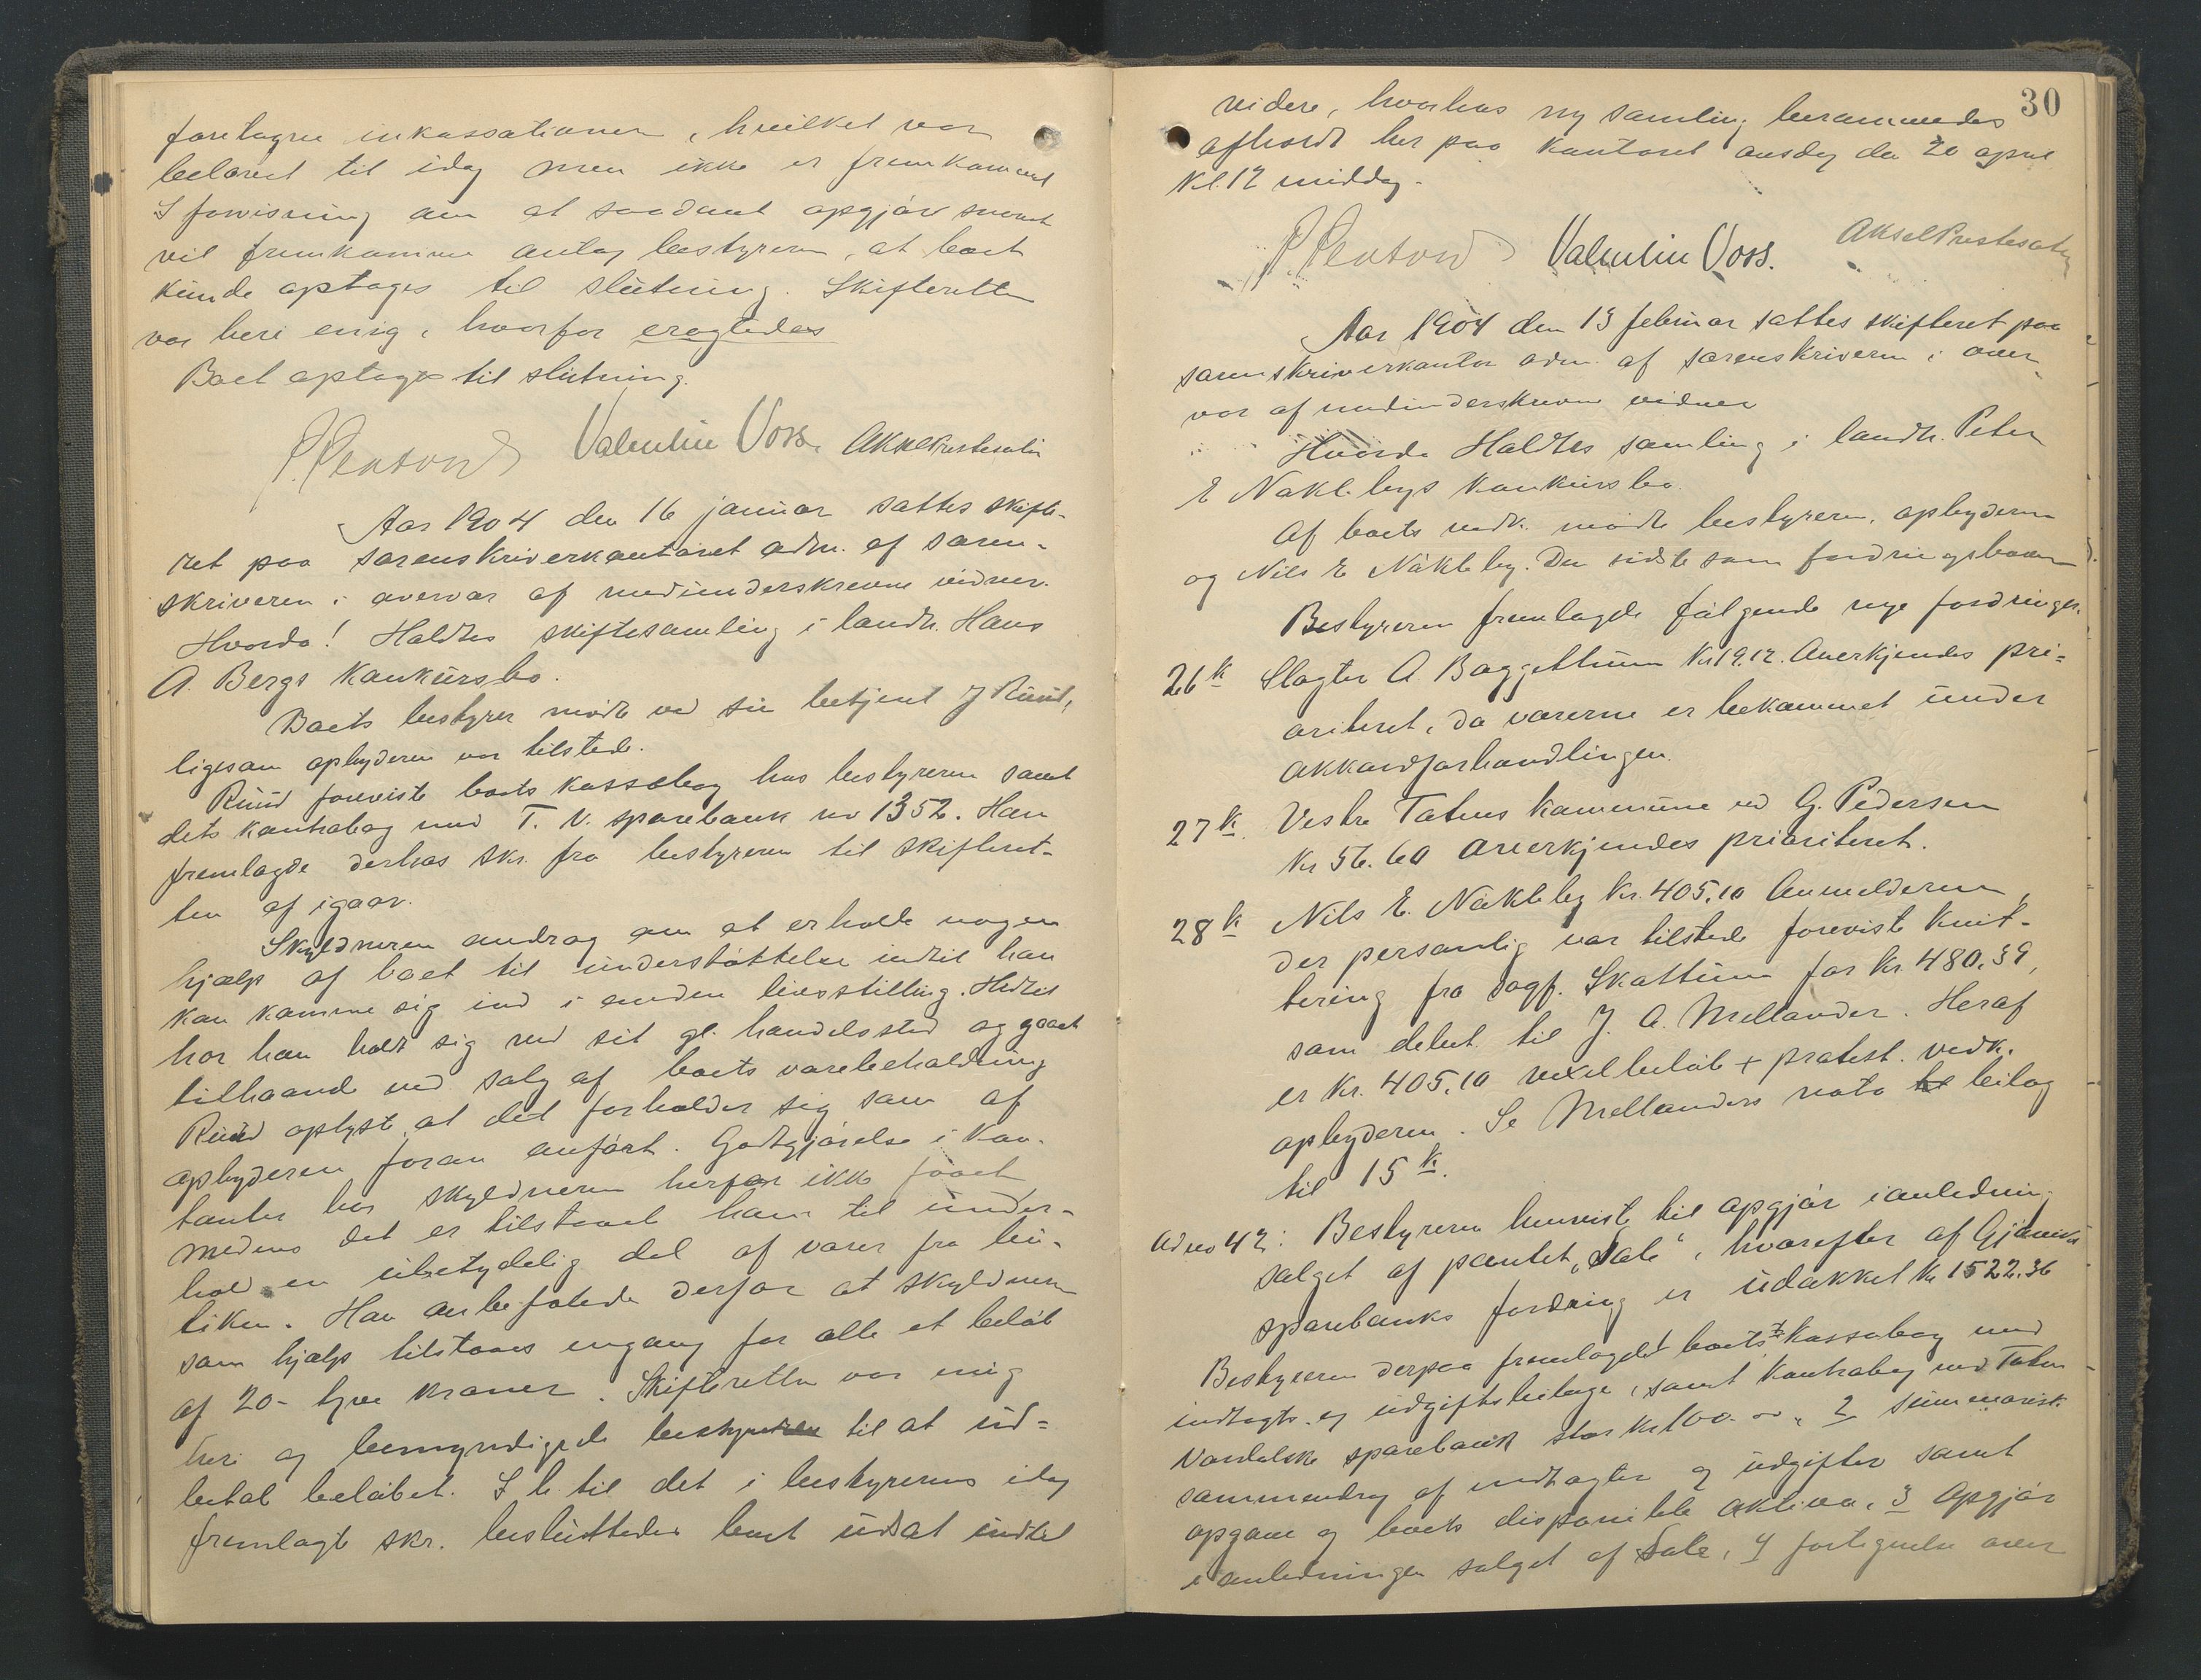 foretagne inkassationer, hvilket var
belovet til idag men ikke er fremkommet
I forvisning om at saadant opgjør snart
vil fremkomme antog bestyreren, at boet
kunde optages til slutning. Skifteretten
var heri enig, hvorfor eragtedes
Boet optages til slutning.
Valentin Voss. Aksel Prestesæter
Aar 1904 den 16 januar sattes skifte-
ret paa sorenskriverkontoret adm. af soren-
skriveren i overvær af medunderskrevne vidner.
Hvorda! Holdtes skiftesamling i landh. Hans
A. Bergs konkursbo.
Boets bestyrer mødte ved sin betjent J Ruud,
ligesom opbyderen var tilstede.
Ruud foreviste boets kassabog hos bestyreren samt
dets kontrabog med T. V. sparebank no 1352. Han
fremlagde derhos skr. fra bestyreren til skifteret-
ten af igaar.
Skyldneren androg om at erholde nogen
hjælp af boet til understøttelse indtil han
kan komme sig ind i anden livsstilling. Hidtil
har han holdt sig ved sit gl. handelssted og gaaet
tilhaande ved salg af boets varebeholdning
Ruud oplyste, at det forholder sig som af
opbyderen foran anført. Godtgjørelse i kon-
tanter har skyldneren herfor ikke faaet
medens det er tilstaaet ham til under-
hold en ubetydelig del af varer fra bu-
tiken. Han anbefalede derfor at skyldneren
som hjælp tilstaaes engang for alle et beløb
af 20 - tyve kroner. Skifteretten var enig
heri og bemyndigede bestyreren til at ud-
betale beløbet. I h. til det i bestyrerens idag
fremlagte skr. besluttedes boet udsat indtil
30
videre, hvorhos ny samling berammedes
afholdt her paa kontoret onsdag den 20 april
Kl. 12 middag.
Valentin Voss. Aksel Prestesæter
Aar 1904 den 13 februar sattes skifteret paa
sorenskriverkontor adm. af sorenskriveren i over-
vær af medunderskrevne vidner
Hvorda Holdtes samling i landh. Peter
E Nøkleby s konkursbo.
Af boets vedk. mødte bestyreren, opbyderen
og Nils E Nøkleby. Den sidste som fordringshaver
Bestyreren fremlagde følgende nye fordringer.
26 k Slagter A. Baggettuen Kr 19.12. Anerkjendes pri-
oriteret, da varerne er bekommet under
akkordforhandlingen.
27 k. Vestre Totens kommune ved G. Pedersen
Kr 56.60 anerkjendes prioriteret.
28 k Nils E. Nøkleby Kr. 405,10 Anmelderen,
der personlig var tilstede foreviste kvit-
tering fra sagf. Skattum for Kr. 480.39,
som debet til J. A. Mellander. Heraf
er Kr. 405,10 vexelbeløb + protest. vedk.
opbyderen. Se Mellanders nota bilag
til 15 k.
Ad no 42: Bestyreren henviste til opgjør i anledning
salget af pantet "Sole", hvorefter af Gjøviks
sparebanks fordring er udækket Kr 1522.36
Bestyreren derpaa fremlagde 1 boets kassabog med
indtægts- og udgiftsbilage, samt kontrabog med Toten
Vardalske sparebank stor Kr 100.00, 2 summarisk
sammendrag af indtægter og udgifter samt
opgave og boets disponible aktiva, 3 Opgjør
i anledningen salget af Sole, 4 fortegnelse over